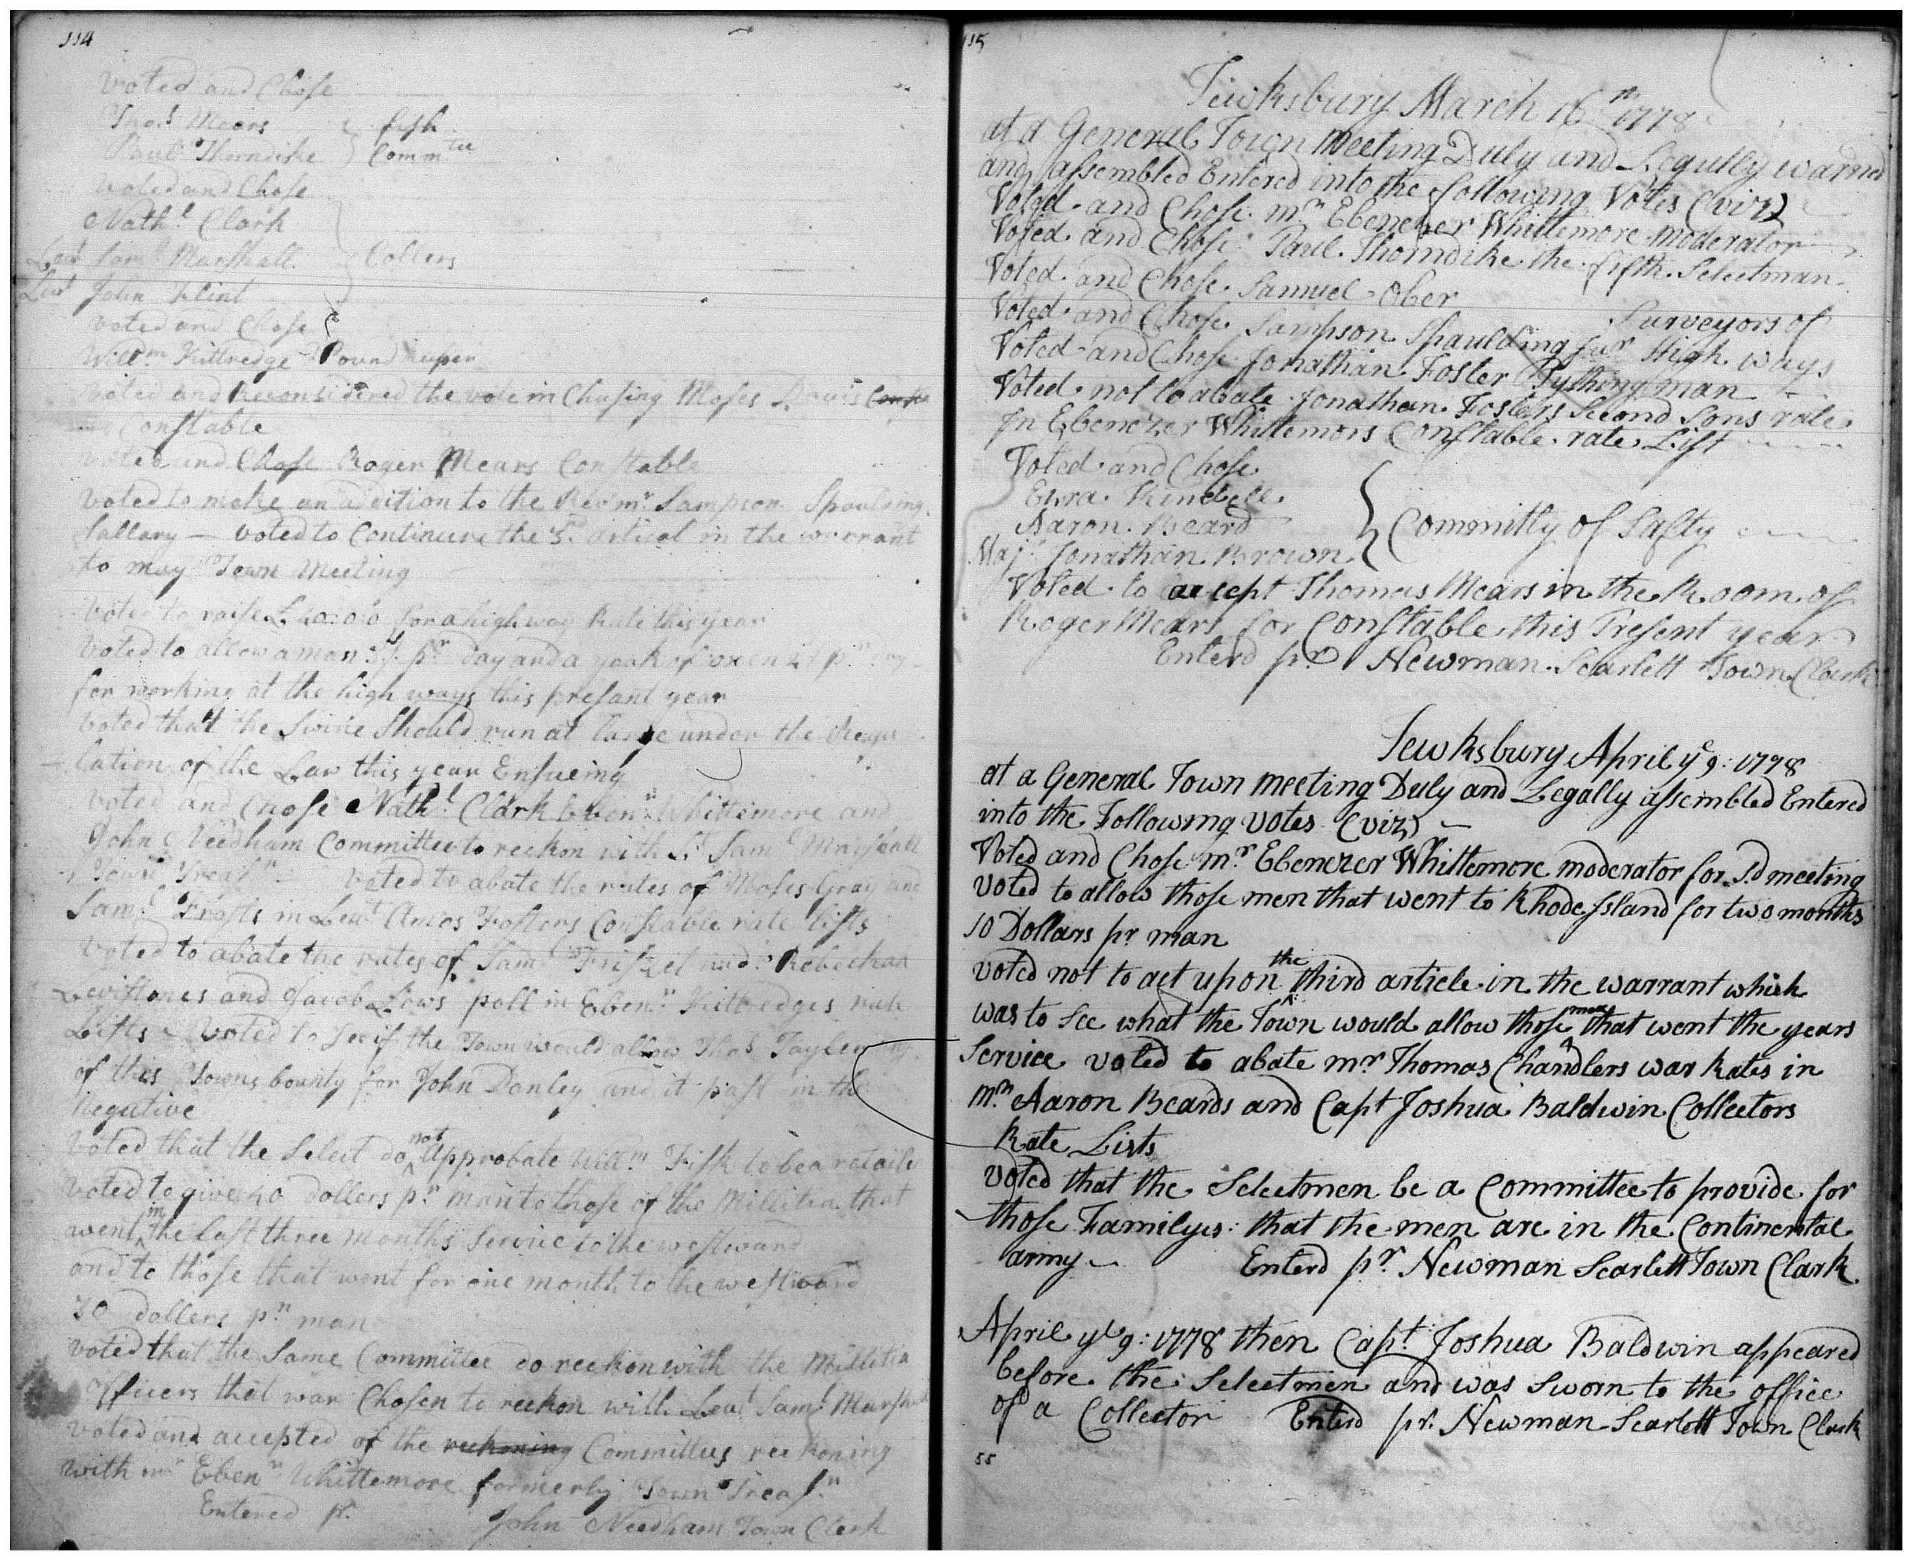 114
Voted and Chose
Thos Mears
Paul Thorndike
fish
Commtee
Voted and Chose
Nathl Clark
Leut Saml Marshall
Collers
Leut John Flint
Voted and Chose
Willm Kittredge Pound keeper
Voted and Reconsidered the vote in Chusing Moses Davis
Constable
Voted and Chose Roger Mears Constable
Voted to make an adition to the Revd mr Sampson Spaulding
Sallary — Voted to Continue the 5 artical in the warrant
to may Town Meeting
Voted to raise for a high way Rate this year
Voted to allow a man pr Day and a yoak of oxen pr
for working at the high ways this presant year
Voted that the Swine Should run at large under the Regu
lation of the Law this year Ensueing
Voted and Chose Nathl Clark Ebenr Whittemore and
John Needham Committee to reckon with Lt Saml Marshall
Town Treasr Voted to abate the rates of Moses Gray and
Saml Frosts in Leut Amos Fosters Constable rate lists
Voted to abate the rates of Saml Frisel Rebeckah
Levistones and Jacob Lows poll in Ebenr Kittredges rate
Lists Voted to see if the Town would allow Thos
of this Towns bounty for John Danley and it past in the
Negative
Voted that the Select do not Approbate Willm Fisk to be a retailer
Voted to give 40 dollers pr man to those of the Millitia that
went in the last three months Service to the westward
and to those that went for one month to the westward
30 dollers pr man
Voted that the Same Committee do reckon with the Millitia
officers that war Chosen to reckon with Leut Saml Marshall
Voted and accepted of the reckoning Committees reckoning
with mr Ebenr Whittemore formerly Town Treasr
Entered pr
John Needham Town Clerk
115
Tewksbury March 16th 1778
at a General Town Meeting Duly and Legully warned
and assembled Entered into the following Votes (viz)
Voted and Chose mr Ebenezer Whittemore Moderator
Voted and Chose Paul Thorndike the fifth Selectman
Voted and Chose Samuel Ober
Voted and Chose Sampson Spaulding Jur
Surveyors of
High ways
Voted and Chose Jonathan Foster Tythingman
Voted not to abate Jonathan Fosters Second Sons rate
In Ebenezer Whittemors Constable rate List
Voted and Chose
Ezra Kindell
Aaron Beard
Committy of Safty
Majr Jonathan Brown
Voted to accept Thomas Mears in the Room of
Roger Mears for Constable this Present year
Enterd pr Newman Scarlett Town Clerk
Tewksbury April ye 9: 1778
at a General Town meeting Duly and Legally assembled Entered
into the Following Votes (viz) —
Voted and Chose mr Ebenezer Whittemore moderator for sd meeting
Voted to allow those men that went to Rhode Island for two months
10 Dollars pr man
Voted not to act upon the third article in the warrant which
was to see what the Town would allow those men that went the years
Service voted to abate mr Thomas Chandlers war Rates in
mr Aaron Beards and Capt Joshua Baldwin Collectors
Rate Lists
Voted that the Selectmen be a Committee to provide for
those Familyes that the men are in the Continental
army — Enterd pr Newman Scarlett Town Clark
April ye 9: 1778 then Capt Joshua Baldwin appeared
before the Selectmen and was Sworn to the office
of a Collector Enterd pr Newman Scarlett Town Clerk
55